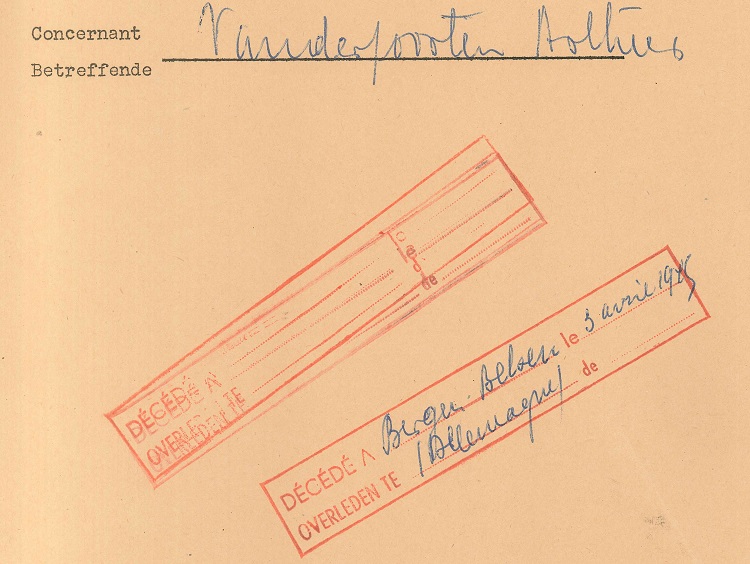 Concernant Vanderpoorten Arthur
Betreffende
DÉCÉDÉ A
OVERLEDEN TE
le
de
DÉCÉDÉ A Bergen-Belsen le 3 avril 1945
OVERLEDEN TE (Allemagne) de